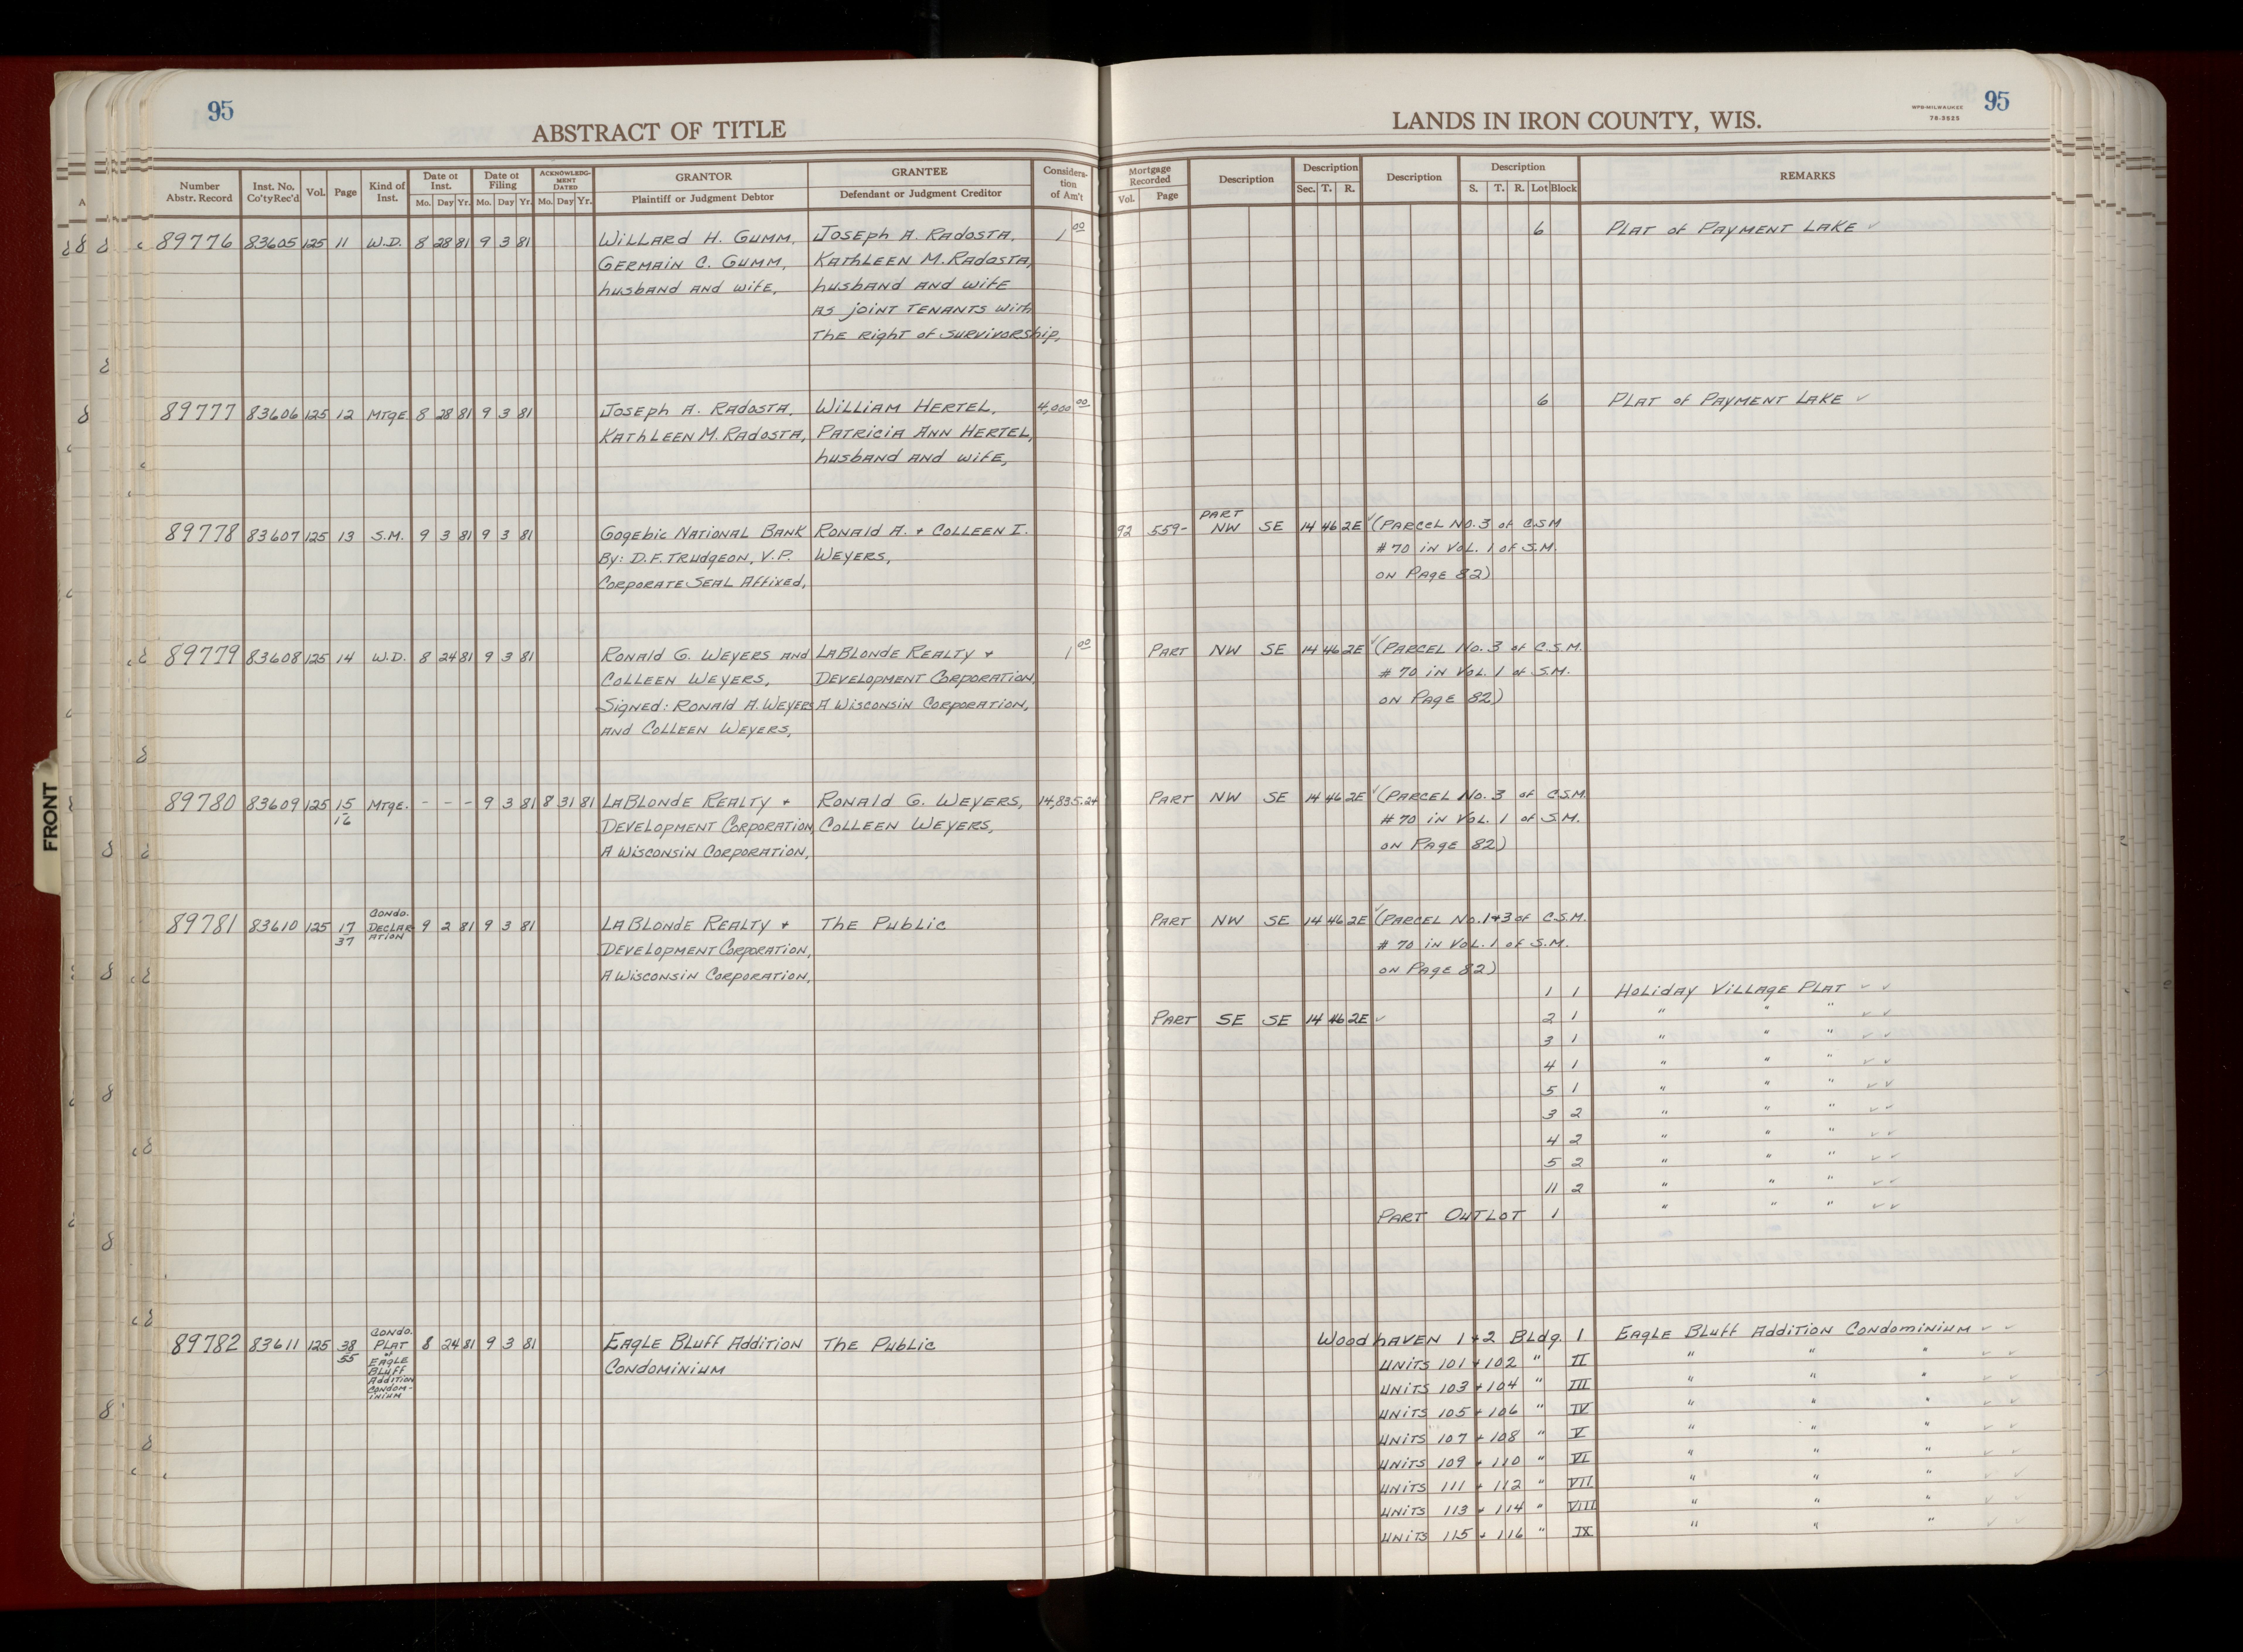 95
ABSTRACT OF TITLE
LANDS IN IRON COUNTY, WIS.
WPB-MILWAUKEE
78-3525
95
Number Abstr. Record | Inst. No. Co'ty Rec'd | Vol. | Page | Kind of Inst. | Date of Inst. Mo. Day Yr. | Date of Filing Mo. Day Yr. | ACKNOWLEDGMENT DATED Mo. Day Yr. | GRANTOR Plaintiff or Judgment Debtor | GRANTEE Defendant or Judgment Creditor | Consideration of Am't | Mortgage Recorded Vol. Page | Description | Description Sec. T. R. | Description | Description S. T. R. Lot Block | REMARKS
89776 83605 125 11 W.D. 8 28 81 9 3 81 Willard H. Gumm, Joseph A. Radosta, 1 00 6 Plat of Payment Lake ✓
Germain C. Gumm, Kathleen M. Radosta,
husband and wife, husband and wife
as joint tenants with
the right of survivorship,
89777 83606 125 12 Mtge. 8 28 81 9 3 81 Joseph A. Radosta, William Hertel, 4,000 00 6 Plat of Payment Lake ✓
Kathleen M. Radosta, Patricia Ann Hertel,
husband and wife,
89778 83607 125 13 S.M. 9 3 81 9 3 81 Gogebic National Bank Ronald A. + Colleen I. 92 559- Part NW SE 14 46 2E ✓ (Parcel No. 3 of C.S.M
By: D.F. Trudgeon, V.P. Weyers, #70 in Vol. 1 of S.M.
Corporate Seal Affixed, on Page 82)
89779 83608 125 14 W.D. 8 24 81 9 3 81 Ronald G. Weyers and LaBlonde Realty + 1 00 Part NW SE 14 46 2E ✓ (Parcel No. 3 of C.S.M.
Colleen Weyers, Development Corporation, #70 in Vol. 1 of S.M.
Signed: Ronald A. Weyers A Wisconsin Corporation, on Page 82)
and Colleen Weyers,
89780 83609 125 15 16 Mtge. - - - 9 3 81 8 31 81 LaBlonde Realty + Ronald G. Weyers, 14,835.24 Part NW SE 14 46 2E ✓ (Parcel No. 3 of C.S.M.
Development Corporation, Colleen Weyers, #70 in Vol. 1 of S.M.
A Wisconsin Corporation, on Page 82)
89781 83610 125 17 37 Condo. Declaration 9 2 81 9 3 81 LaBlonde Realty + The Public Part NW SE 14 46 2E ✓ (Parcel No. 1+3 of C.S.M.
Development Corporation, #70 in Vol. 1 of S.M.
A Wisconsin Corporation, on Page 82)
1 1 Holiday Village Plat ✓ ✓
Part SE SE 14 46 2E ✓ 2 1 " " " ✓ ✓
3 1 " " " ✓ ✓
4 1 " " " ✓ ✓
5 1 " " " ✓ ✓
3 2 " " " ✓ ✓
4 2 " " " ✓ ✓
5 2 " " " ✓ ✓
11 2 " " " ✓ ✓
Part Outlot 1 " " " ✓ ✓
89782 83611 125 38 55 Condo. Plat of Eagle Bluff Addition Condominium 8 24 81 9 3 81 Eagle Bluff Addition The Public Woodhaven 1+2 Bldg. 1 Eagle Bluff Addition Condominium ✓ ✓
Condominium Units 101 + 102 " II " " " ✓ ✓
Units 103 + 104 " III " " " ✓ ✓
Units 105 + 106 " IV " " " ✓ ✓
Units 107 + 108 " V " " " ✓ ✓
Units 109 + 110 " VI " " " ✓ ✓
Units 111 + 112 " VII " " " ✓ ✓
Units 113 + 114 " VIII " " " ✓ ✓
Units 115 + 116 " IX " " " ✓ ✓
FRONT